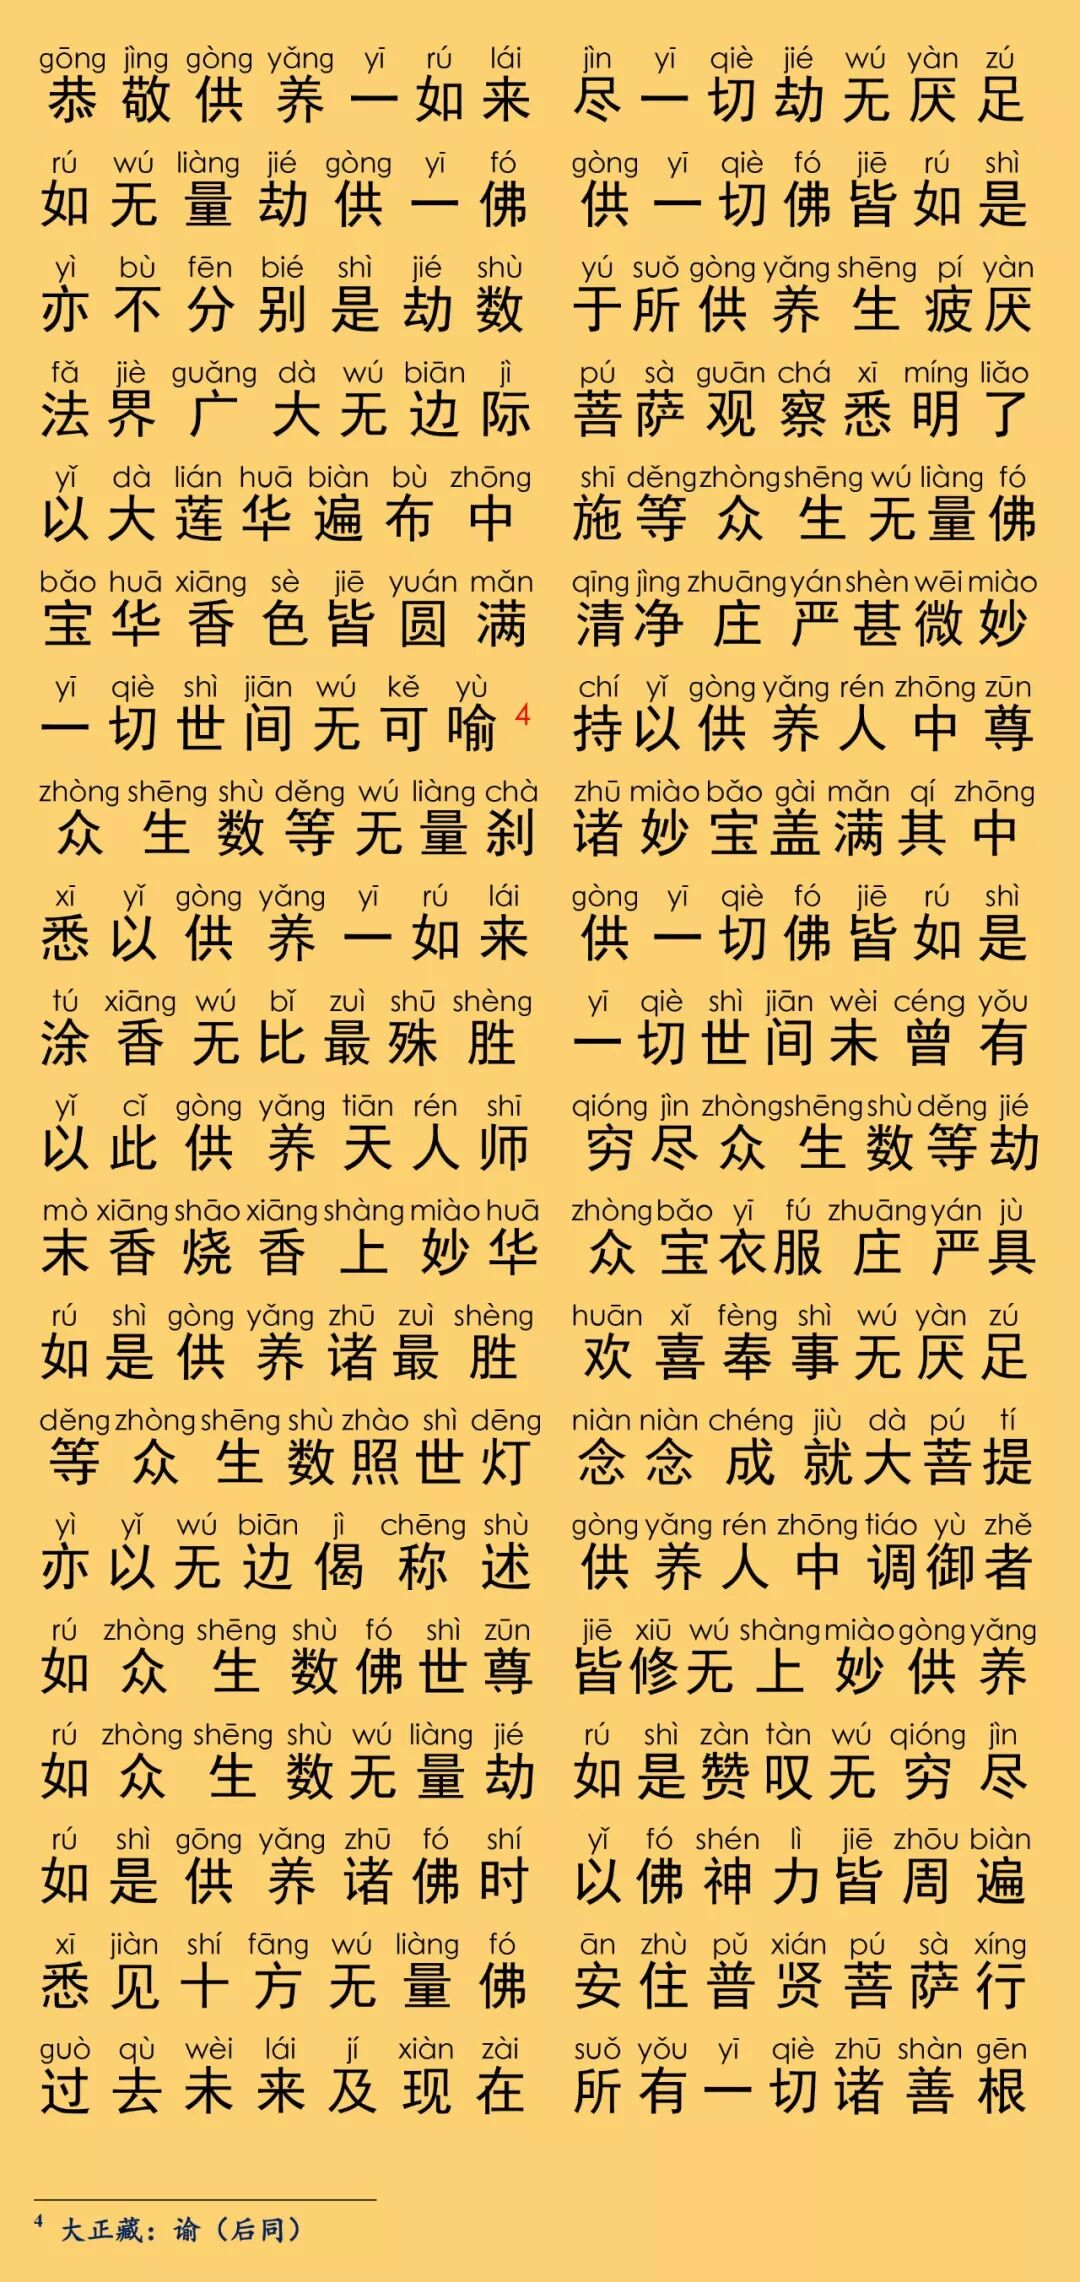 gōng jìng gòng yǎng yī rú lái jìn yī qiè jié wú yàn zú
恭敬供养一如来 尽一切劫无厌足
rú wú liàng jié gòng yī fó gòng yī qiè fó jiē rú shì
如无量劫供一佛 供一切佛皆如是
yì bù fēn bié shì jié shù yú suǒ gòng yǎng shēng pí yàn
亦不分别是劫数 于所供养生疲厌
fǎ jiè guǎng dà wú biān jì pú sà guān chá xī míng liǎo
法界广大无边际 菩萨观察悉明了
yǐ dà lián huā biàn bù zhōng shī děng zhòng shēng wú liàng fó
以大莲华遍布中 施等众生无量佛
bǎo huā xiāng sè jiē yuán mǎn qīng jìng zhuāng yán shèn wēi miào
宝华香色皆圆满 清净庄严甚微妙
yī qiè shì jiān wú kě yù chí yǐ gòng yǎng rén zhōng zūn
一切世间无可喻4 持以供养人中尊
zhòng shēng shù děng wú liàng chà zhū miào bǎo gài mǎn qí zhōng
众生数等无量刹 诸妙宝盖满其中
xī yǐ gòng yǎng yī rú lái gòng yī qiè fó jiē rú shì
悉以供养一如来 供一切佛皆如是
tú xiāng wú bǐ zuì shū shèng yī qiè shì jiān wèi céng yǒu
涂香无比最殊胜 一切世间未曾有
yǐ cǐ gòng yǎng tiān rén shī qióng jìn zhòng shēng shù děng jié
以此供养天人师 穷尽众生数等劫
mò xiāng shāo xiāng shàng miào huā zhòng bǎo yī fú zhuāng yán jù
末香烧香上妙华 众宝衣服庄严具
rú shì gòng yǎng zhū zuì shèng huān xǐ fèng shì wú yàn zú
如是供养诸最胜 欢喜奉事无厌足
děng zhòng shēng shù zhào shì dēng niàn niàn chéng jiù dà pú tí
等众生数照世灯 念念成就大菩提
yì yǐ wú biān jì chēng shù gòng yǎng rén zhōng tiáo yù zhě
亦以无边偈称述 供养人中调御者
rú zhòng shēng shù fó shì zūn jiē xiū wú shàng miào gòng yǎng
如众生数佛世尊 皆修无上妙供养
rú zhòng shēng shù wú liàng jié rú shì zàn tàn wú qióng jìn
如众生数无量劫 如是赞叹无穷尽
rú shì gōng yǎng zhū fó shí yǐ fó shén lì jiē zhōu biàn
如是供养诸佛时 以佛神力皆周遍
xī jiàn shí fāng wú liàng fó ān zhù pǔ xián pú sà xíng
悉见十方无量佛 安住普贤菩萨行
guò qù wèi lái jí xiàn zài suǒ yǒu yī qiè zhū shàn gēn
过去未来及现在 所有一切诸善根
4 大正藏：谕（后同）